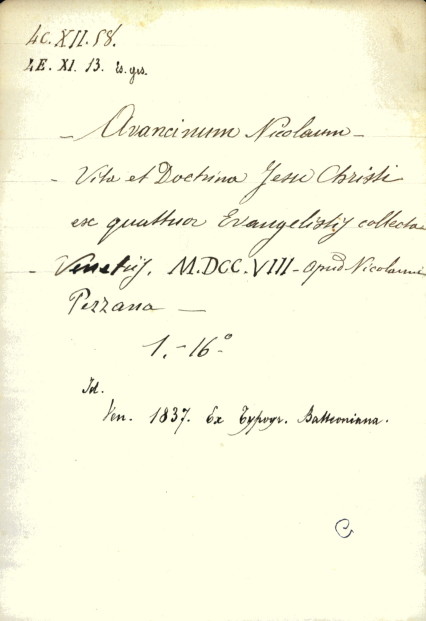 4C. XII. 58.
4E. XI. 13. es. grs.
- Avancinum Nicolaum -
- Vita et Doctrina Jesu Christi
ex quattuor Evangelistis collecta
- Venetijs. M.DCC.VIII - apud Nicolaum
Pezzana -
1. - 16°
Id.
Ven. 1837. Ex Typogr. Batteoniana.
C